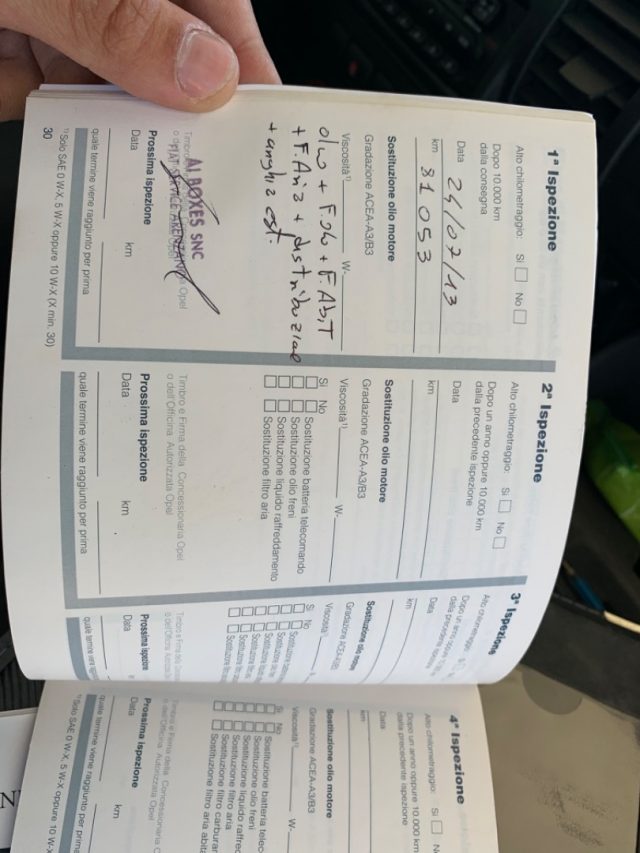 1ª Ispezione
Alto chilometraggio: Si No
Dopo 10.000 km
dalla consegna
Data 24/07/13
km 81053
Sostituzione olio motore
Gradazione ACEA-A3/B3
Viscosità¹⁾ W-
olio + F.olio + F.Abit
+ F.Aria + distribuzione
+ cinghia est.
Timbro
A1 BOXES SNC
Opel
Prossima ispezione
Data km
quale termine viene raggiunto per prima
¹⁾ Solo SAE 0 W-X, 5 W-X oppure 10 W-X (X min. 30)
30
2ª Ispezione
Alto chilometraggio: Si No
Dopo un anno oppure 10.000 km
dalla precedente ispezione
Data
km
Sostituzione olio motore
Gradazione ACEA-A3/B3
Viscosità¹⁾ W-
Si No
Sostituzione batteria telecomando
Sostituzione olio freni
Sostituzione liquido raffreddamento
Sostituzione filtro aria
Timbro e Firma della Concessionaria Opel
o dell'Officina Autorizzata Opel
Prossima ispezione
Data km
quale termine viene raggiunto per prima
3ª Ispezione
Alto chilometraggio:
Dopo un anno oppure
dalla precedente
Data
km
Sostituzione olio motore
Gradazione ACEA-A3/B3
Viscosità¹⁾
Si No
Prossima ispezione
Data
quale termine viene
4ª Ispezione
Alto chilometraggio: Si N
Dopo un anno oppure 10.000 km
dalla precedente ispezione
Data
km
Sostituzione olio motore
Gradazione ACEA-A3/B3
Viscosità¹⁾ W-
Si No
Sostituzione batteria telec
Sostituzione olio freni
Sostituzione liquido raffred
Sostituzione filtro aria
Sostituzione filtro carburan
Sostituzione filtro aria abita
Timbro e Firma della Concessionaria O
o dell'Officina Autorizzata Opel
Prossima ispezione
Data km
quale termine viene raggiunto per prima
¹⁾ Solo SAE 0 W-X, 5 W-X oppure 10 W-X